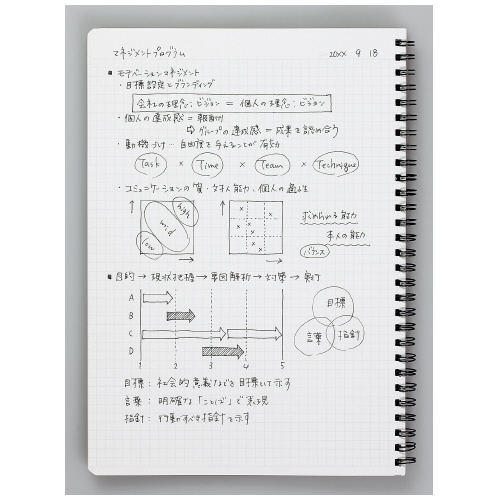 マネジメントプログラム 20XX 9 18
■ モチベーションマネジメント
・目標設定とブランディング
会社の理念:ビジョン = 個人の理念:ビジョン
・個人の達成感 = 報酬
⇨ グループの達成感 = 成果を認め合う
・動機づけ … 自由度を与えることが有効
Task × Time × Team × Technique
・コミュニケーションの質・対人能力、個人の適性
high
mid
low
求められる能力
本人の能力
バランス
■ 目的 → 現状把握 → 要因解析 → 対策 → 実行
A
B
C
D
1 2 3 4 5
目標
言葉 指針
目標: 社会的意義などを目標として示す
言葉: 明確な「ことば」で表現
指針: 行動すべき指針を示す